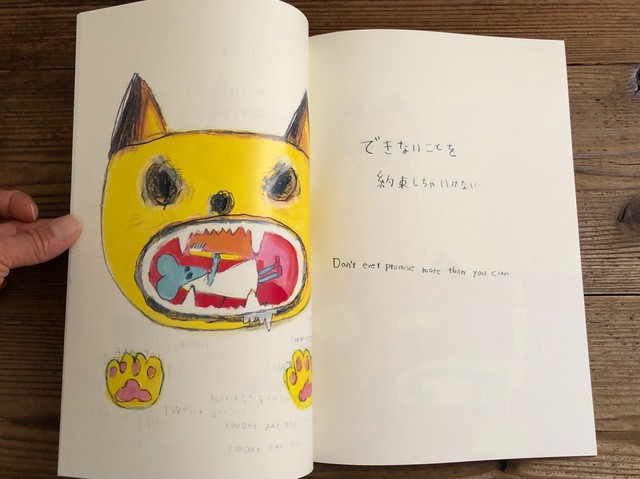 できないことを
約束しちゃいけない
Don't ever promise more than you can